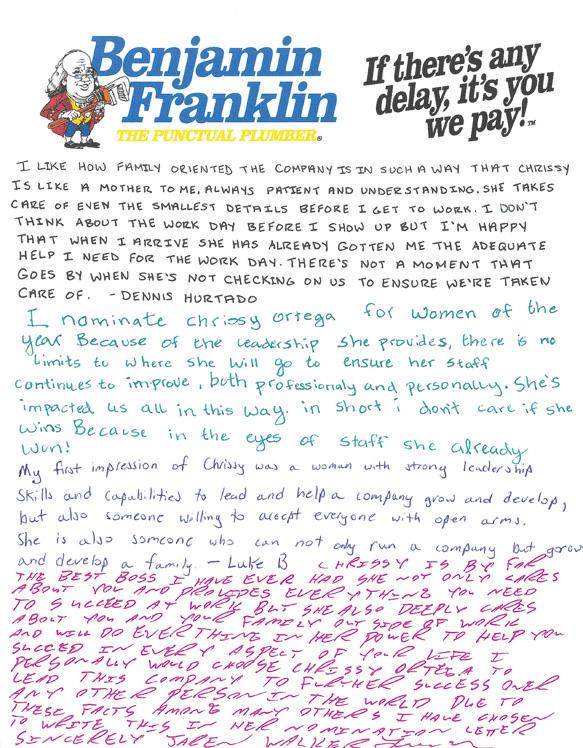 Benjamin
Franklin
THE PUNCTUAL PLUMBER®
If there's any
delay, it's you
we pay!™
I LIKE HOW FAMILY ORIENTED THE COMPANY IS IN SUCH A WAY THAT CHRISSY
IS LIKE A MOTHER TO ME, ALWAYS PATIENT AND UNDERSTANDING. SHE TAKES
CARE OF EVEN THE SMALLEST DETAILS BEFORE I GET TO WORK. I DON'T
THINK ABOUT THE WORK DAY BEFORE I SHOW UP BUT I'M HAPPY
THAT WHEN I ARRIVE SHE HAS ALREADY GOTTEN ME THE ADEQUATE
HELP I NEED FOR THE WORK DAY. THERE'S NOT A MOMENT THAT
GOES BY WHEN SHE'S NOT CHECKING ON US TO ENSURE WE'RE TAKEN
CARE OF. - DENNIS HURTADO
I nominate chrissy ortega for women of the
year Because of the leadership she provides, there is no
limits to where she will go to ensure her staff
continues to improve, both professionaly and personally. She's
impacted us all in this way. in short i don't care if she
wins Because in the eyes of staff she already
won!
My first impression of Chrissy was a woman with strong leadership
skills and capabilities to lead and help a company grow and develop,
but also someone willing to accept everyone with open arms.
She is also someone who can not only run a company but grow
and develop a family. - Luke B
CHRISSY IS BY FAR
THE BEST BOSS I HAVE EVER HAD SHE NOT ONLY CARES
ABOUT YOU AND PROVIDES EVERYTHING YOU NEED
TO SUCCEED AT WORK BUT SHE ALSO DEEPLY CARES
ABOUT YOU AND YOUR FAMILY OUT SIDE OF WORK
AND WILL DO EVERTHING IN HER POWER TO HELP YOU
SUCCED IN EVERY ASPECT OF YOUR LIFE I
PERSONALLY WOULD CHOOSE CHRISSY ORTEGA TO
LEAD THIS COMPANY TO FURTHER SUCCESS OVER
ANY OTHER PERSON IN THE WORLD DUE TO
THESE FACTS AMONG MANY OTHERS I HAVE CHOSEN
TO WRITE THIS IN HER NOMINATION LETTER
SINCERELY JAREN WALKER